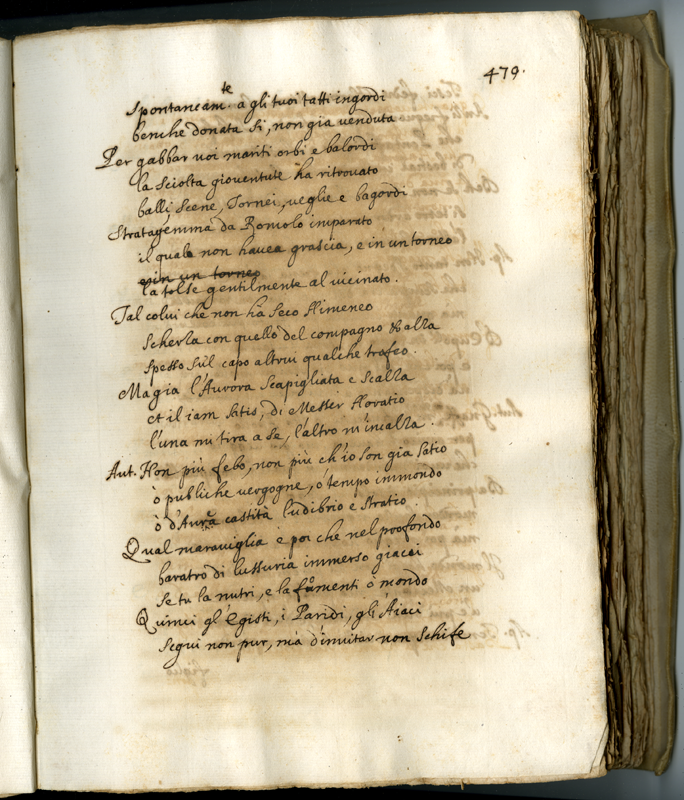 479.
Spontaneam.te a gli tuoi tatti ingordi
benche donata si, non gia venduta
Per gabbar voi mariti orbi e balordi
la sciolta gioventute ha ritrovato
balli scene, Tornei, veglie e bagordi
Stratagemma da Romolo imparato
il quale non havea grascia, e in un torneo
e in un torneo
la tolse gentilmente al vicinato.
Tal colui che non ha seco Himeneo
scherza con quello del compagno & alza
spesso sul capo altrui qualche trofeo.
Ma gia l'Aurora scapigliata e scalza
et il iam satis, di Messer Horatio
l'una mi tira a se, l'altro m'incalza.
Aut. Non più febo, non più ch'io son gia satio
ò publiche vergogne, ò tempo immondo
ò d'Aurea castità ludibrio e stratio.
Qual maraviglia e poi che nel profondo
baratro di lussuria immerso giaci
se tu la nutri, e la fomenti ò mondo
Quinci gl'Egisti, i Paridi, gli Aiaci
segui non pur, mà d'imitar non schife